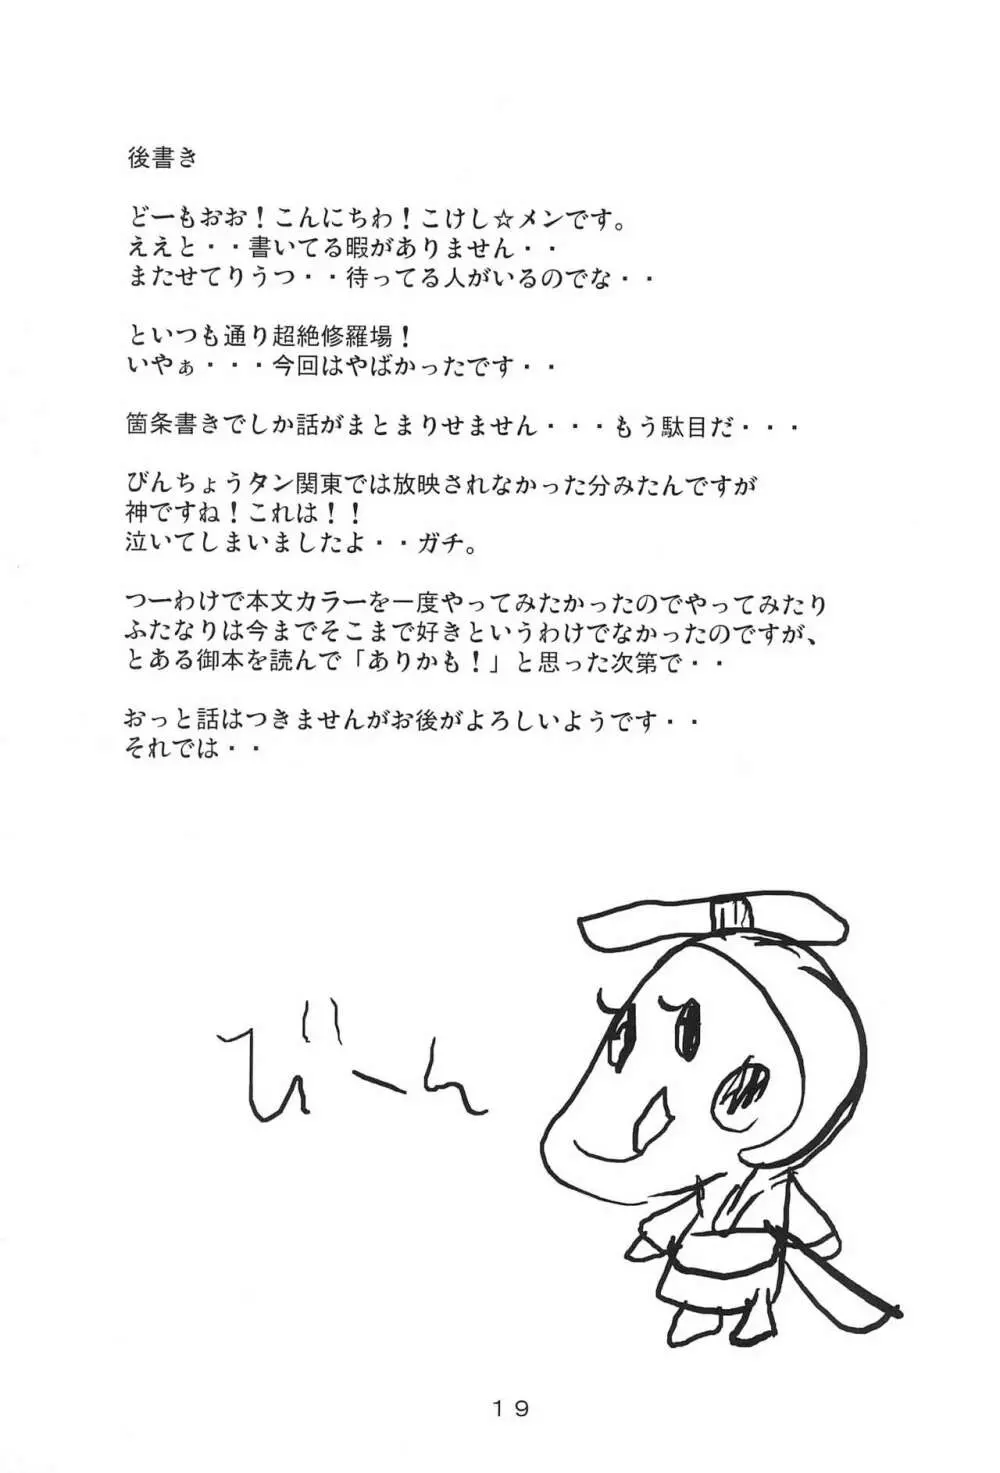 後書き
どーもおお！こんにちわ！こけし☆メンです。
ええと・・書いてる暇がありません・・
またせてりうつ・・待ってる人がいるのでな・・
といつも通り超絶修羅場！
いやぁ・・・今回はやばかったです・・
箇条書きでしか話がまとまりせません・・・もう駄目だ・・・
びんちょうタン関東では放映されなかった分みたんですが
神ですね！これは！！
泣いてしまいましたよ・・ガチ。
つーわけで本文カラーを一度やってみたかったのでやってみたり
ふたなりは今までそこまで好きというわけでなかったのですが、
とある御本を読んで「ありかも！」と思った次第で・・
おっと話はつきませんがお後がよろしいようです・・
それでは・・
びーん
19